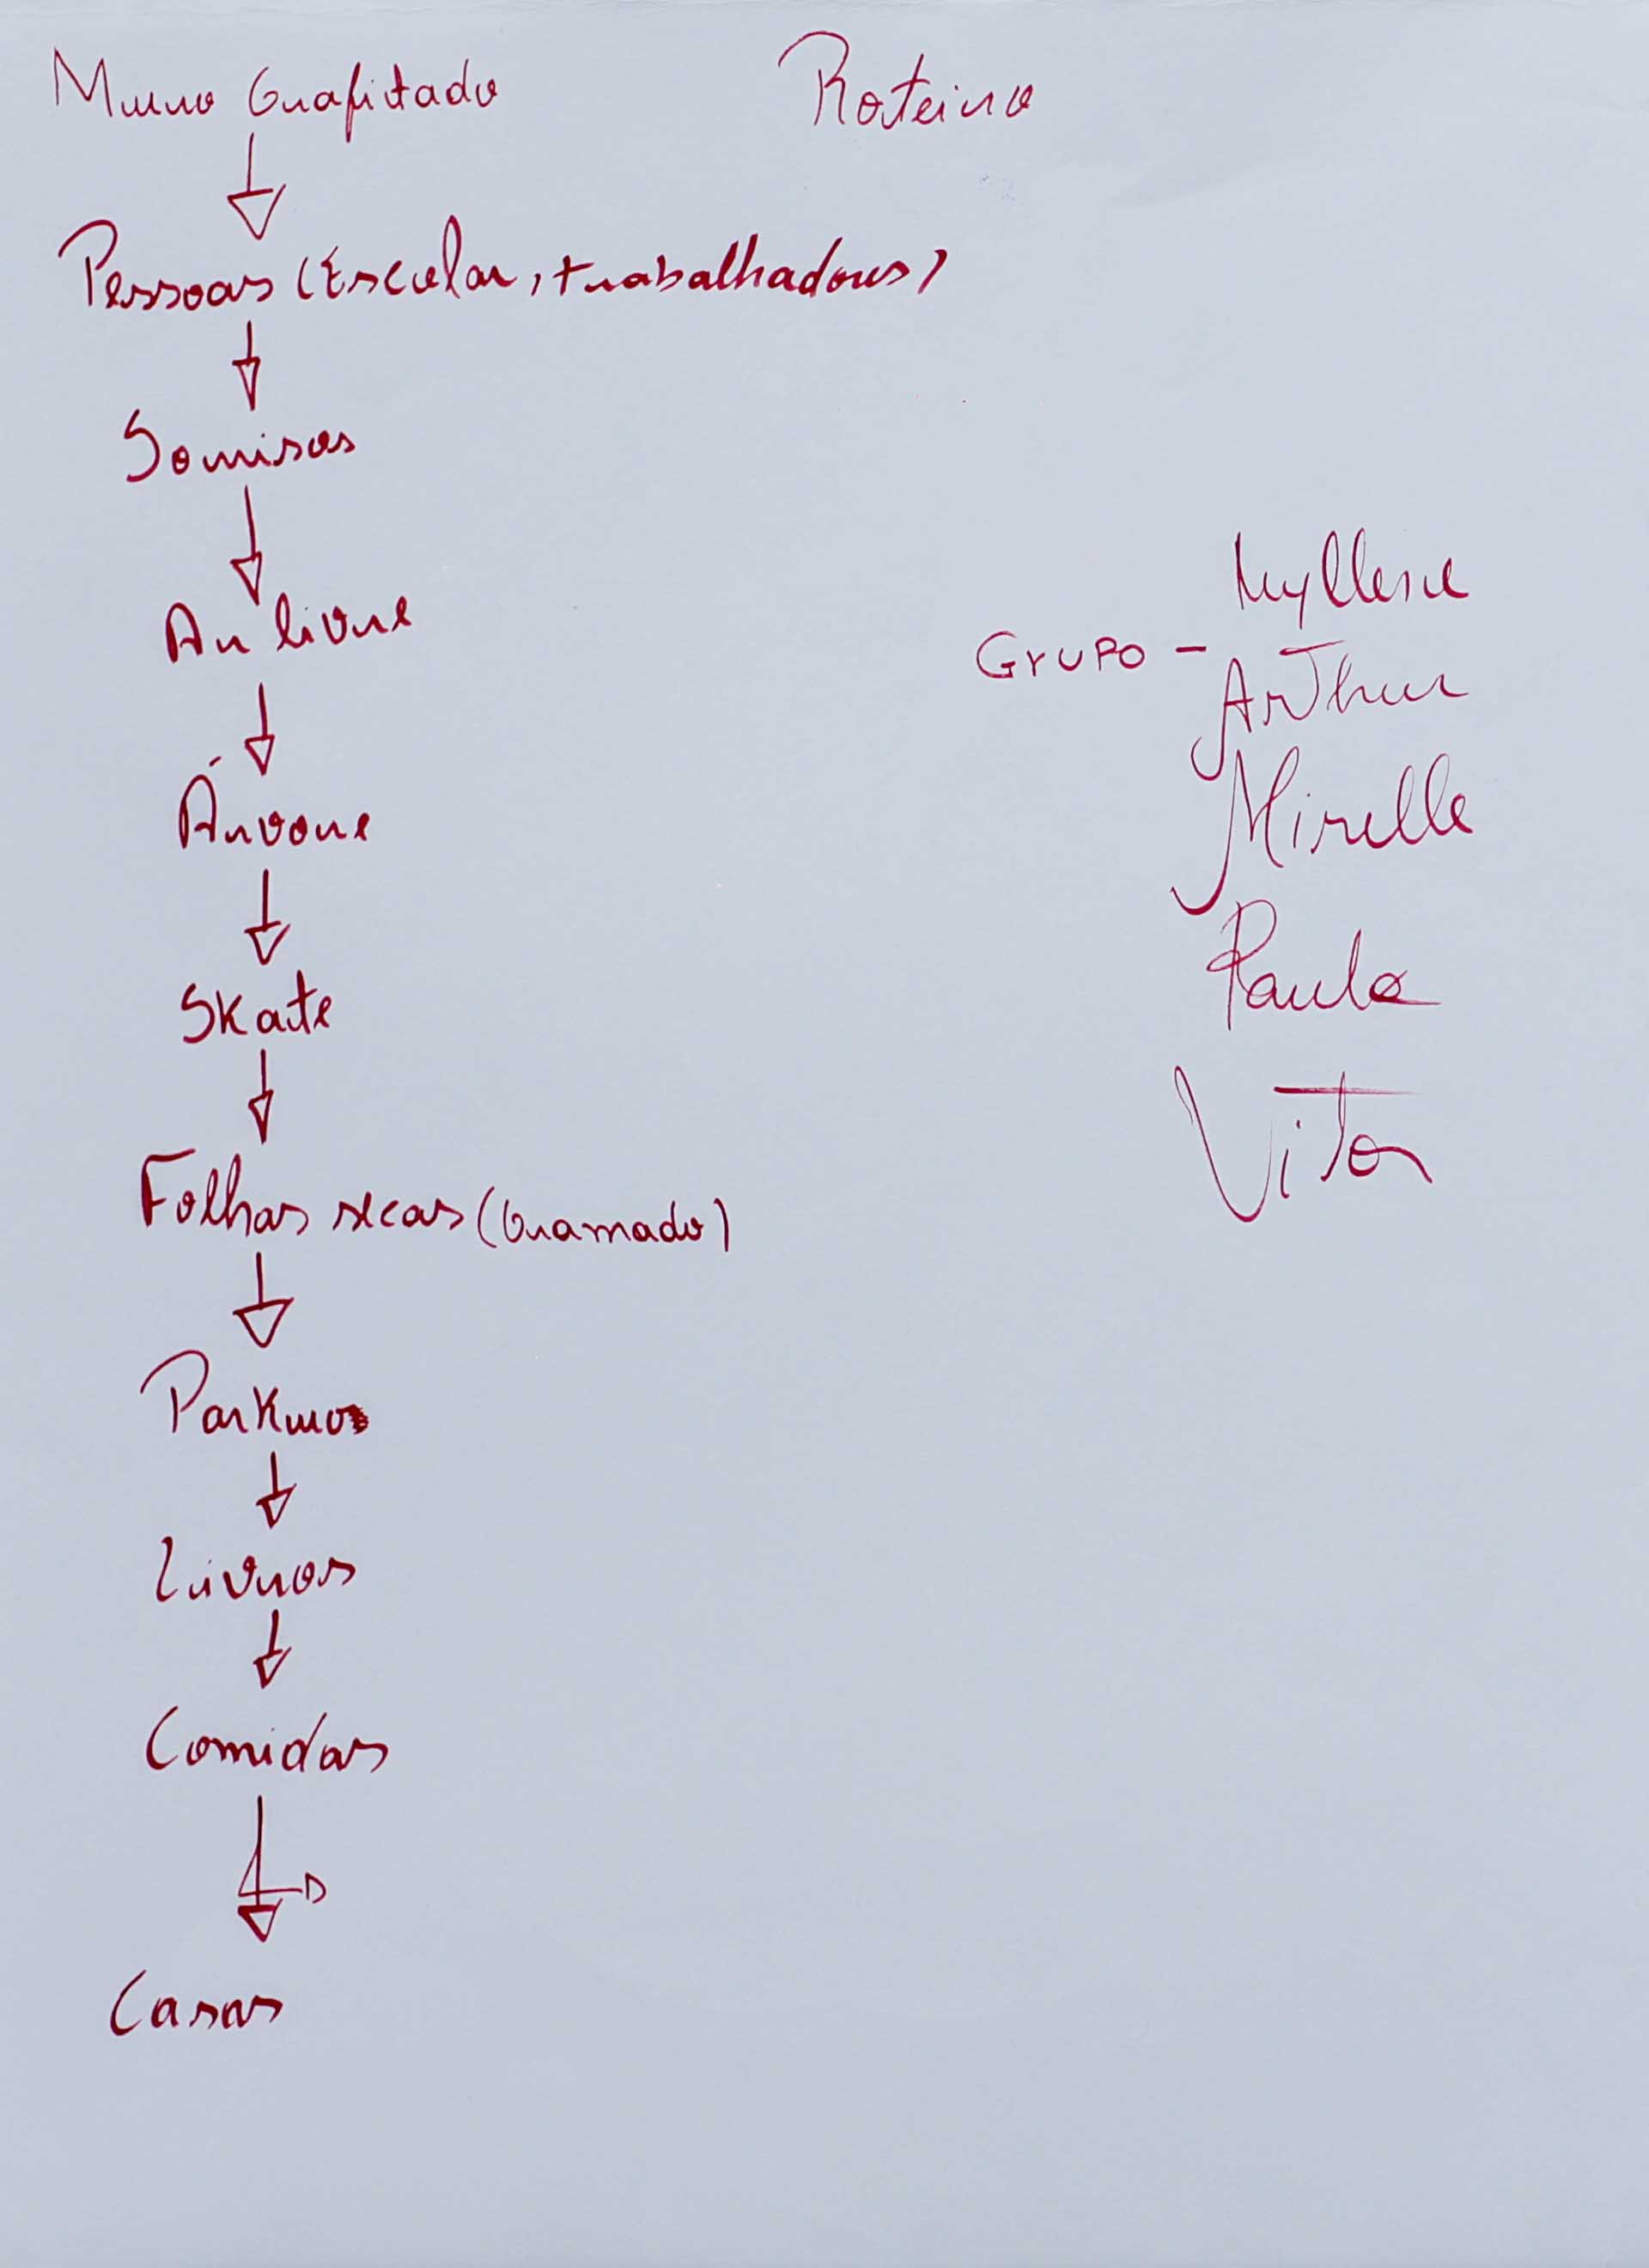 Roteiro
Muro Grafitado
Pessoas (Escolar, trabalhadores)
Sorrisos
Ar livre
Árvore
Skate
Folhas secas (Gramado)
Livros
Comidas
Casas
Grupo -
Arthur
Mirelle
Paulo
Vitor